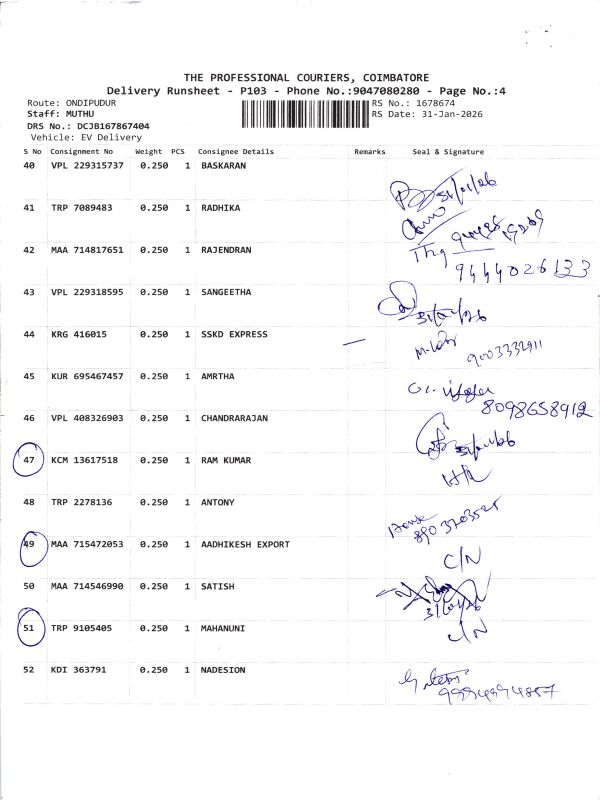 THE PROFESSIONAL COURIERS, COIMBATORE
Delivery Runsheet - P103 - Phone No.:9047080280 - Page No.:4
Route: ONDIPUDUR
RS No.: 1678674
Staff: MUTHU
RS Date: 31-Jan-2026
DRS No.: DCJB167867404
Vehicle: EV Delivery
S No Consignment No Weight PCS Consignee Details Remarks Seal & Signature
40 VPL 229315737 0.250 1 BASKARAN
31/01/26
41 TRP 7089483 0.250 1 RADHIKA
42 MAA 714817651 0.250 1 RAJENDRAN
9444026133
43 VPL 229318595 0.250 1 SANGEETHA
31/01/26
44 KRG 416015 0.250 1 SSKD EXPRESS
9003332911
45 KUR 695467457 0.250 1 AMRTHA
8098658912
46 VPL 408326903 0.250 1 CHANDRARAJAN
31/01/26
47 KCM 13617518 0.250 1 RAM KUMAR
48 TRP 2278136 0.250 1 ANTONY
8903703525
49 MAA 715472053 0.250 1 AADHIKESH EXPORT
C/N
50 MAA 714546990 0.250 1 SATISH
31/01/26
51 TRP 9105405 0.250 1 MAHANUNI
C/N
52 KDI 363791 0.250 1 NADESION